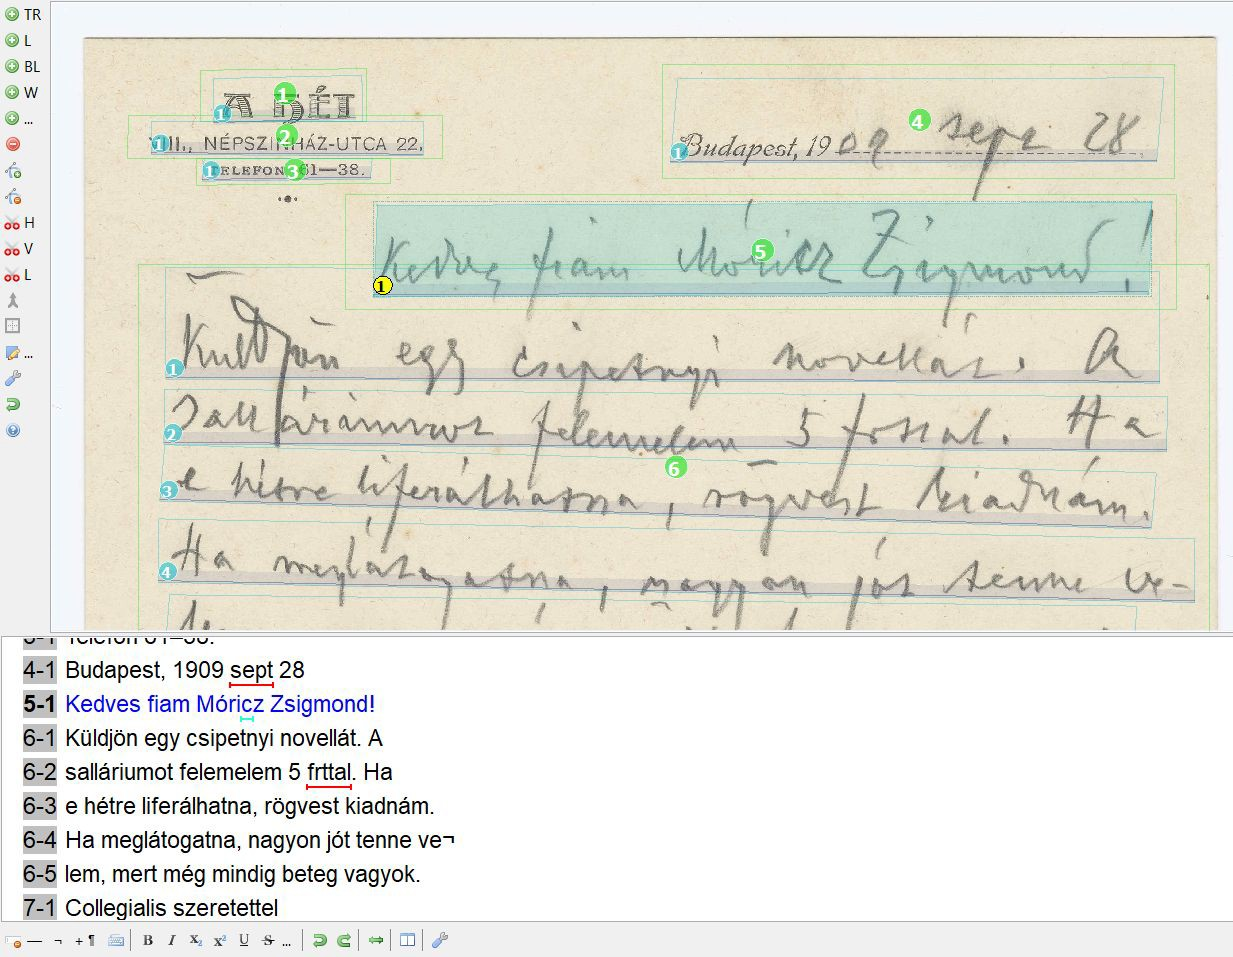 TR
L
BL
W
...
H
V
L
...
A HÉT
VIII., NÉPSZINHÁZ-UTCA 22.
TELEFON 61—38.
Budapest, 1909 sept 28
Kedves fiam Móricz Zsigmond!
Küldjön egy csipetnyi novellát. A
salláriumot felemelem 5 frttal. Ha
e hétre liferálhatna, rögvest kiadnám.
Ha meglátogatna, nagyon jót tenne ve-
1
2
3
4
5
6
1
1
1
1
1
1
2
3
4
3-1 Telefon 61–38.
4-1 Budapest, 1909 sept 28
5-1 Kedves fiam Móricz Zsigmond!
6-1 Küldjön egy csipetnyi novellát. A
6-2 salláriumot felemelem 5 frttal. Ha
6-3 e hétre liferálhatna, rögvest kiadnám.
6-4 Ha meglátogatna, nagyon jót tenne ve¬
6-5 lem, mert még mindig beteg vagyok.
7-1 Collegialis szeretettel
— ¬ + ¶ B I X₂ X² U S ...